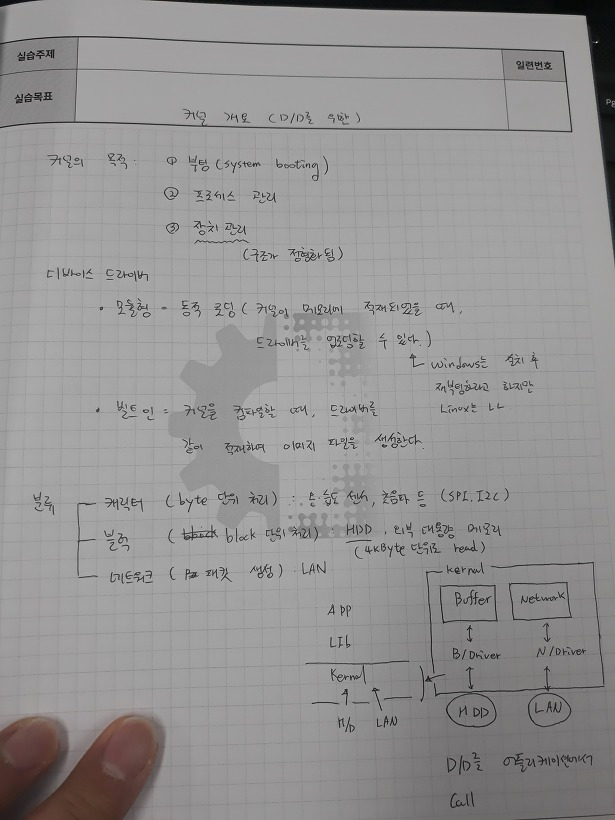 실습주제
일련번호
실습목표
커널 개요 (D/D를 위한)
커널의 목적. ① 부팅 (system booting)
② 프로세스 관리
③ 장치 관리
(구조가 정형화 됨)
디바이스 드라이버
• 모듈형 = 동적 로딩 (커널이 메모리에 적재되었을 때,
드라이버를 업로딩할 수 있다.)
Windows는 설치 후
재부팅하라고 하지만
Linux는 ㄴㄴ
• 빌트인 = 커널을 컴파일할 때, 드라이버를
같이 적재하여 이미지 파일을 생성한다.
분류
캐릭터 (byte 단위 처리) : 온·습도 센서, 초음파 등 (SPI, I2C)
블럭 (block 단위 처리) HDD, 외부 대용량 메모리
(4KByte 단위로 read)
네트워크 (패킷 생성). LAN
APP
LIb
Kernel
H/D LAN
Kernal
Buffer Network
B/Driver N/Driver
HDD LAN
D/D를 어플리케이션에서
Call